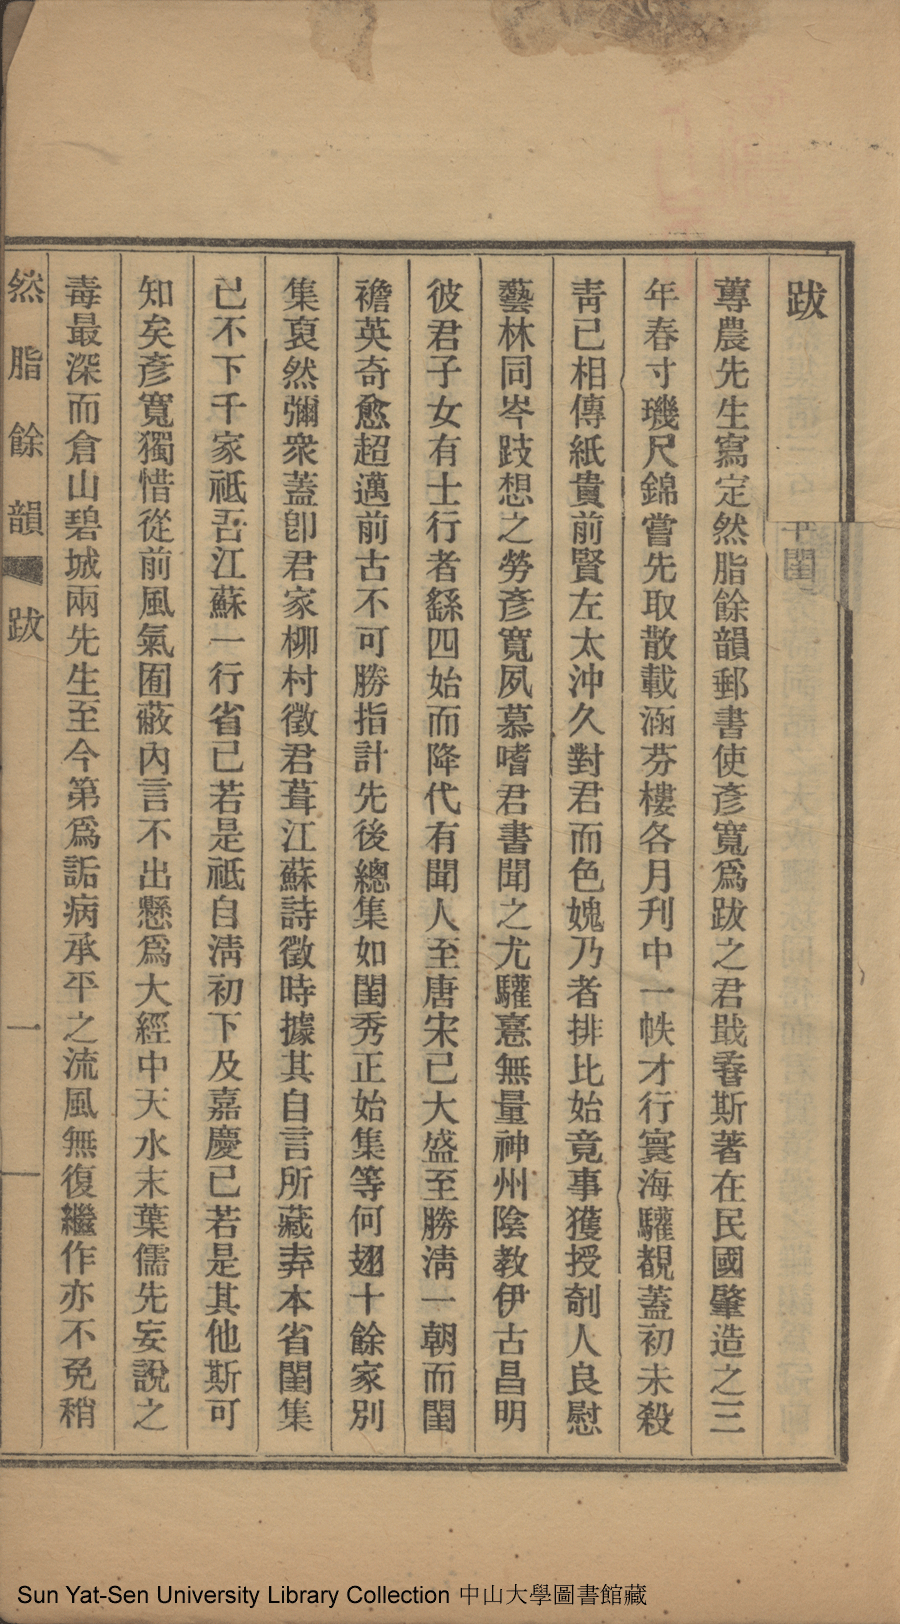 跋
蓴農先生寫定然脂餘韻郵書使彥寬爲跋之君戢孴斯著在民國肇造之三
年春寸璣尺錦嘗先取散載涵芬樓各月刋中一帙才行寰海驩覩蓋初未殺
靑已相傳紙貴前賢左太沖久對君而色媿乃者排比始竟事獲授剞人良慰
藝林同岑跂想之勞彥寬夙慕嗜君書聞之尤驩憙無量神州陰教伊古昌明
彼君子女有士行者繇四始而降代有聞人至唐宋已大盛至勝淸一朝而閨
襜英奇愈超邁前古不可勝指計先後總集如閨秀正始集等何翅十餘家別
集裒然彌衆蓋卽君家柳村徵君葺江蘇詩徵時據其自言所藏弆本省閨集
已不下千家祗吾江蘇一行省已若是祗自淸初下及嘉慶已若是其他斯可
知矣彥寬獨惜從前風氣囿蔽內言不出懸爲大經中天水末葉儒先妄說之
毒最深而倉山碧城兩先生至今第爲詬病承平之流風無復繼作亦不免稍
然脂餘韻 跋 一
Sun Yat-Sen University Library Collection 中山大學圖書館藏